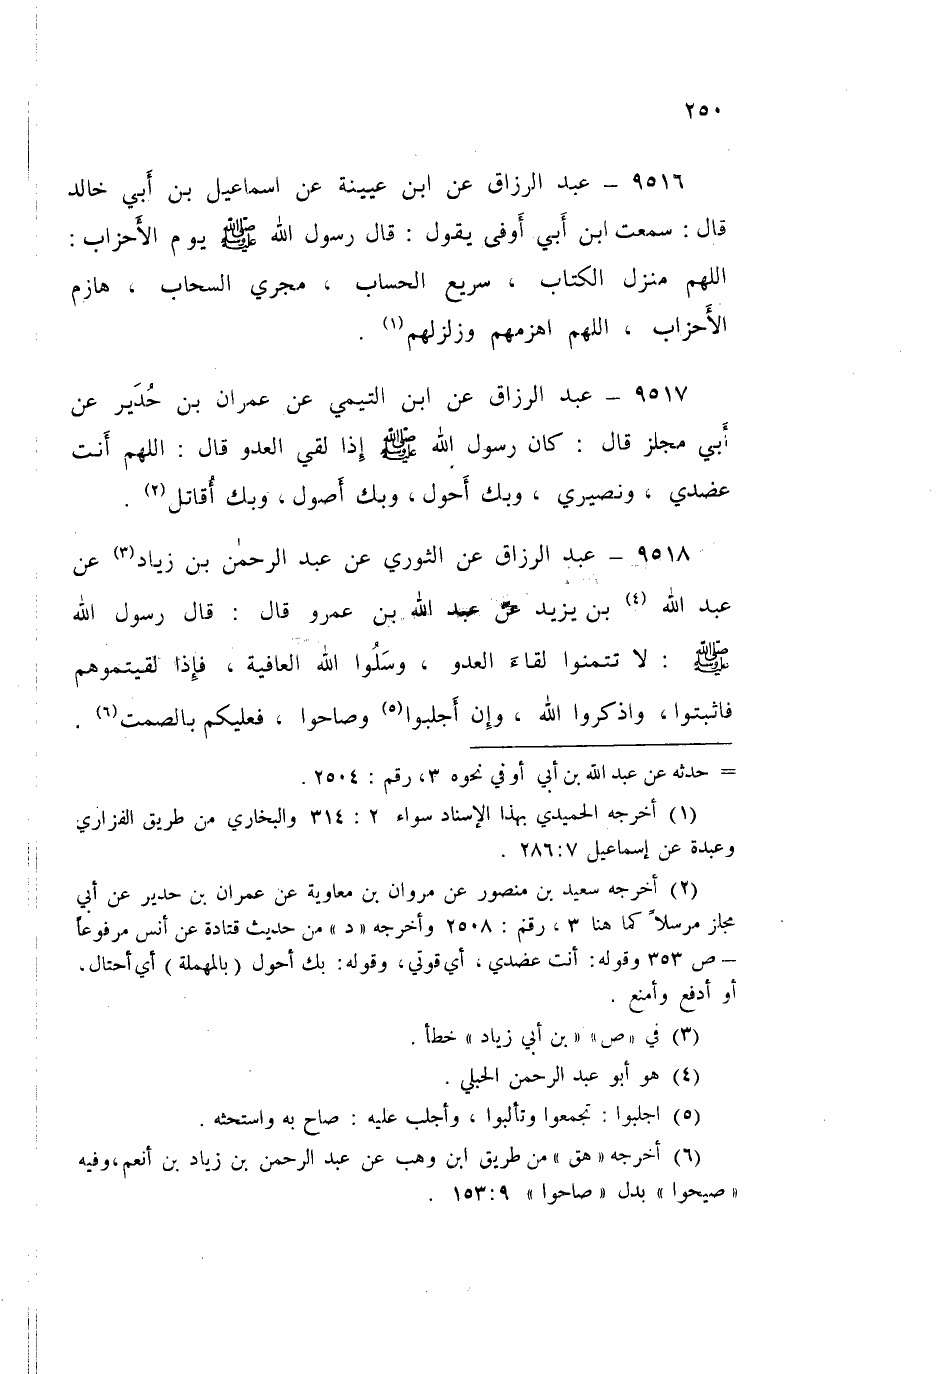 ٢٥٠
٩٥١٦ – عبد الرزاق عن ابن عيينة عن اسماعيل بن أَبي خالد
قال : سمعت ابن أَبي أَوفى يقول : قال رسول الله ﷺ يوم الأَحزاب :
اللهم منزل الكتاب ، سريع الحساب ، مجري السحاب ، هازم
الأَحزاب ، اللهم اهزمهم وزلزلهم(١) .
٩٥١٧ – عبد الرزاق عن ابن التيمي عن عمران بن حُدَير عن
أَبي مجلز قال : كان رسول الله ﷺ إذا لقي العدو قال : اللهم أَنت
عضدي ، ونصيري ، وبك أَحول ، وبك أَصول ، وبك أُقاتل(٢) .
٩٥١٨ – عبد الرزاق عن الثوري عن عبد الرحمٰن بن زياد(٣) عن
عبد الله (٤) بن يزيد عن عبد الله بن عمرو قال : قال رسول الله
ﷺ : لا تتمنوا لقاءَ العدو ، وسَلُوا الله العافية ، فإذا لقيتموهم
فاثبتوا، واذكروا الله ، وإن أَجلبوا(٥) وصاحوا ، فعليكم بالصمت(٦) .
= حدثه عن عبد الله بن أبي أوفي نحوه ٣، رقم : ٢٥٠٤ .
(١) أخرجه الحميدي بهذا الإسناد سواء ٢ : ٣١٤ والبخاري من طريق الفزاري
وعبدة عن إسماعيل ٢٨٦:٧ .
(٢) أخرجه سعيد بن منصور عن مروان بن معاوية عن عمران بن حدير عن أبي
مجلز مرسلاً كما هنا ٣ ، رقم : ٢٥٠٨ وأخرجه « د » من حديث قتادة عن أنس مرفوعاً
– ص ٣٥٣ وقوله: أنت عضدي ، أي قوتي، وقوله: بك أحول ( بالمهملة ) أي أحتال.
أو أدفع وأمنع .
(٣) في «ص» « بن أبي زياد » خطأ .
(٤) هو أبو عبد الرحمن الحبلي .
(٥) اجلبوا : تجمعوا وتألبوا ، وأجلب عليه : صاح به واستحثه .
(٦) أخرجه « هق » من طريق ابن وهب عن عبد الرحمن بن زياد بن أنعم،وفيه
« صيحوا » بدل « صاحوا » ١٥٣:٩ .